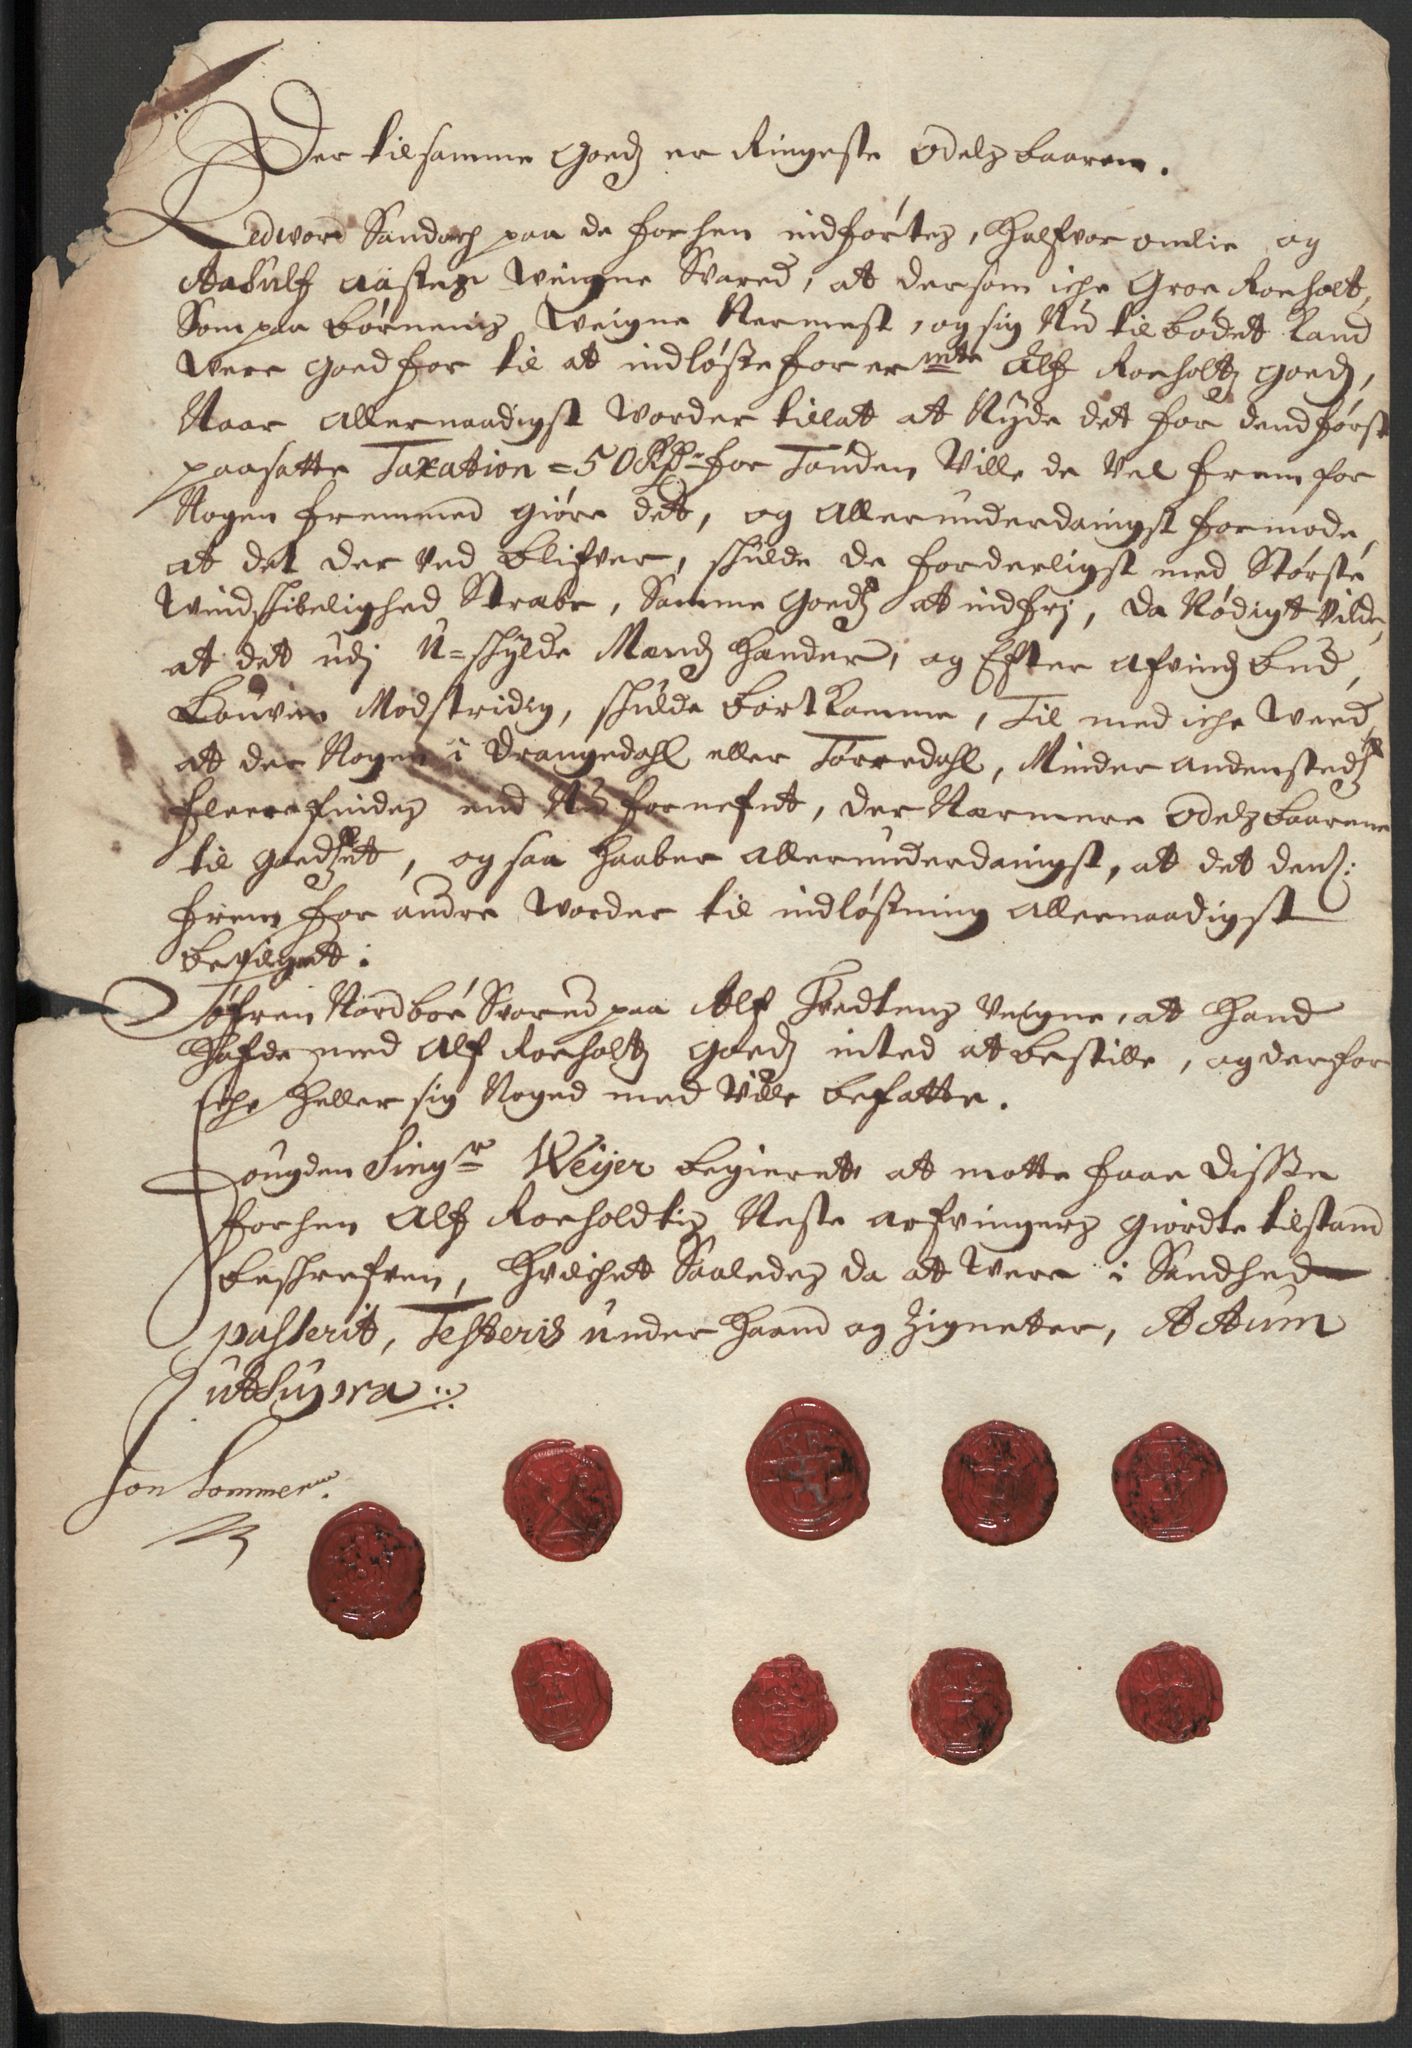 Der til samme Goedz er Ringeste Odelsbaaren.
Ledword Sandach paa de forhen indførtes, Halfvor omlie og
Aasulf aastes weigne Svared, at dersom iche Groe Roeholt,
Som paa børnenis weigne Nermest, og sig Nu tilbødet Kand
were goed for til at indløsse forermte Alf Roeholtz goedz,
Naar allernaadigst worder tillat at Nyde det for dend først
paasatte Taxation = 50 Rdr for Tønden Ville de Vel frem for
Nogen fremmed giøre det, og allerunderdanigst formode,
at det der ved blifver, skulde de forderligst med Største
windskibelighed Strabe, Samme Goedz at indfrj, da Nødigt vilde,
at det udj U=skylde Mands Hænder, og Efter afvinds bud,
Louven Modstridig, skulde bort Komme, Til med iche weed,
at der Nogen i Drangedahl eller Tørredahl, Minder andenstedz
fleere findes end Nu fornefnt, der Nærmere Odelsbaarene
til goedzet, og saa haaber allerunderdanigst, at det dem:
frem for andre worder til indløsning allernaadigst
bevilget:
Tøfren Nordboe Svared paa Alf Tvedtens veigne, at hand
hafde med Alf Roeholtz goedz inted at bestille, og derfor
iche heller sig Noged med Ville befatte.
Fougden Singr Weyer begierete at motte faae disse
forhen Alf Roeholdtis Neste arfvingers giordte tilstand
beskrefven, hvilchet Saaledes da at were i Sandhed
passerit, Testeris under haand og Zigneter, Actum
ut Supra
Jon Sommer